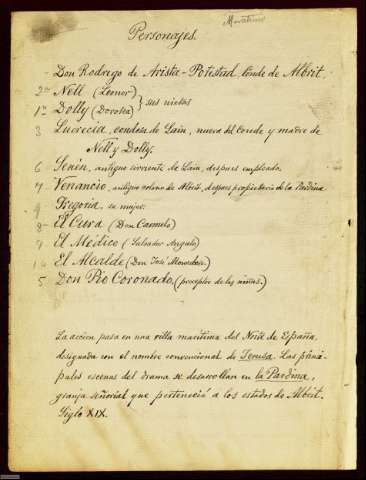 Personajes.
- Don Rodrigo de Arista-Potestad, Conde de Albrit.
2ª Nell (Leonor) } sus nietas
1ª Dolly (Dorotea)
3 Lucrecia, condesa de Laín, nuera del Conde y madre de
Nell y Dolly.
6 Senén, antiguo sirviente de Laín, despues empleado.
7 Venancio, antiguo colono de Albrit, despues propietario de la Pardina
9 Gregoria, su mujer.
8 El Cura (Don Carmelo)
9 El Médico (Salvador Angulo)
10 El Alcalde (Don José Monedero)
5 Don Pío Coronado, (preceptor de las niñas.)
La accion pasa en una villa maritima del Norte de España,
designada con el nombre convencional de Jerusa. Las princi-
pales escenas del drama se desarrollan en la Pardina,
granja señorial que perteneció a los estados de Albrit.
Siglo XIX.